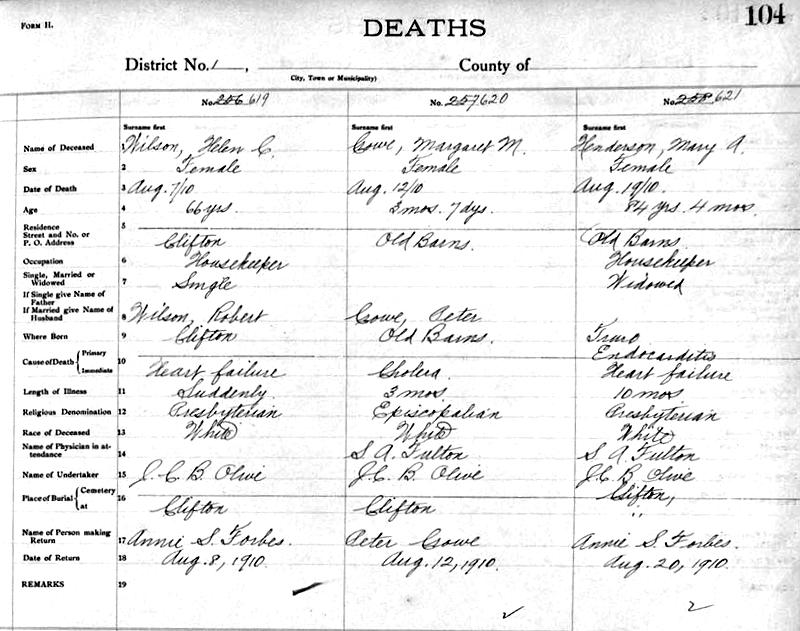 FORM II.
DEATHS
104
District No. 1, County of
City, Town or Municipality)
No. 256 619 No. 257 620 No. 258 621
Surname first Surname first Surname first
Name of Deceased 1 Wilson, Helen C. Cowe, Margaret M. Henderson, Mary A.
Sex 2 Female Female Female
Date of Death 3 Aug. 7/10 Aug. 12/10 Aug. 19/10.
Age 4 66 yrs. 3 mos. 7 dys. 84 yrs. 4 mos.
Residence 5
Street and No. or
P. O. Address Clifton Old Barns. Old Barns.
Occupation 6 Housekeeper Housekeeper
Single, Married or
Widowed 7 Single Widowed
If Single give Name of
Father
If Married give Name of
Husband 8 Wilson, Robert Cowe, Peter
Where Born 9 Clifton Old Barns. Truro
Cause of Death { Primary Endocarditis
Immediate 10 Heart failure Cholera. Heart failure
Length of Illness 11 Suddenly 3 mos. 10 mos.
Religious Denomination 12 Presbyterian Episcopalian Presbyterian
Race of Deceased 13 White White White
Name of Physician in at-
tendance 14 S A. Fulton S A. Fulton
Name of Undertaker 15 J. C. B. Olive J. C. B. Olive J. C. B. Olive
Place of Burial { Cemetery 16 Clifton,
at Clifton Clifton "
Name of Person making
Return 17 Annie S. Forbes Peter Cowe Annie S. Forbes.
Date of Return 18 Aug. 8, 1910. Aug. 12, 1910. Aug. 20, 1910.
REMARKS 19